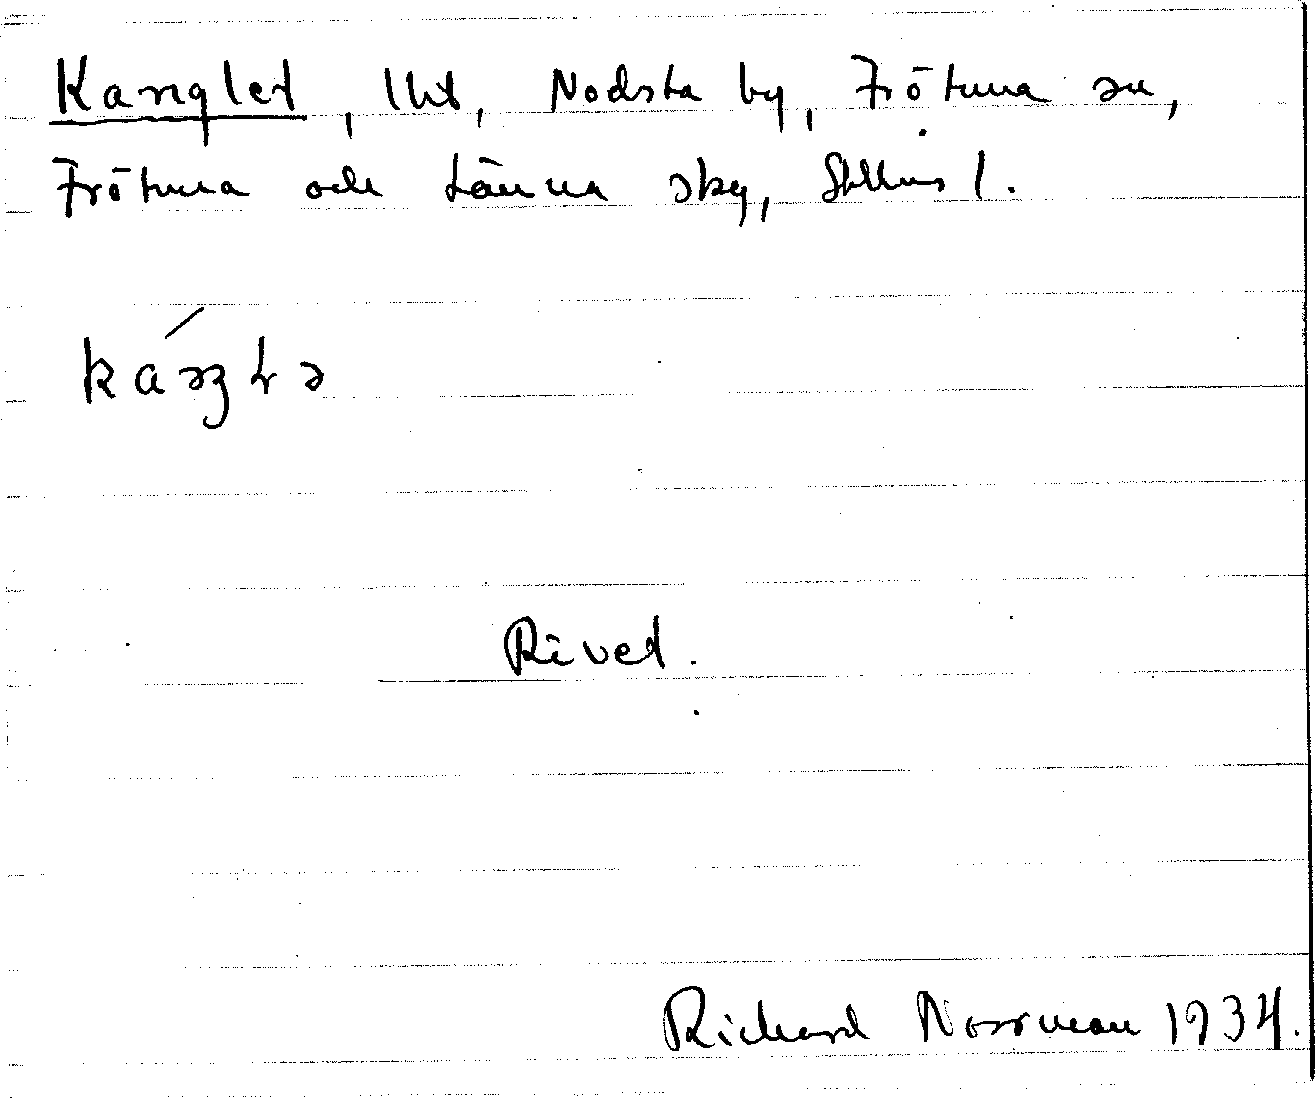 Kanglet, lht, Nodsta by, Frötuna sn,
Frötuna och Länna skg, Sthlms l.
Rivet.
Richard Norrman 1934.